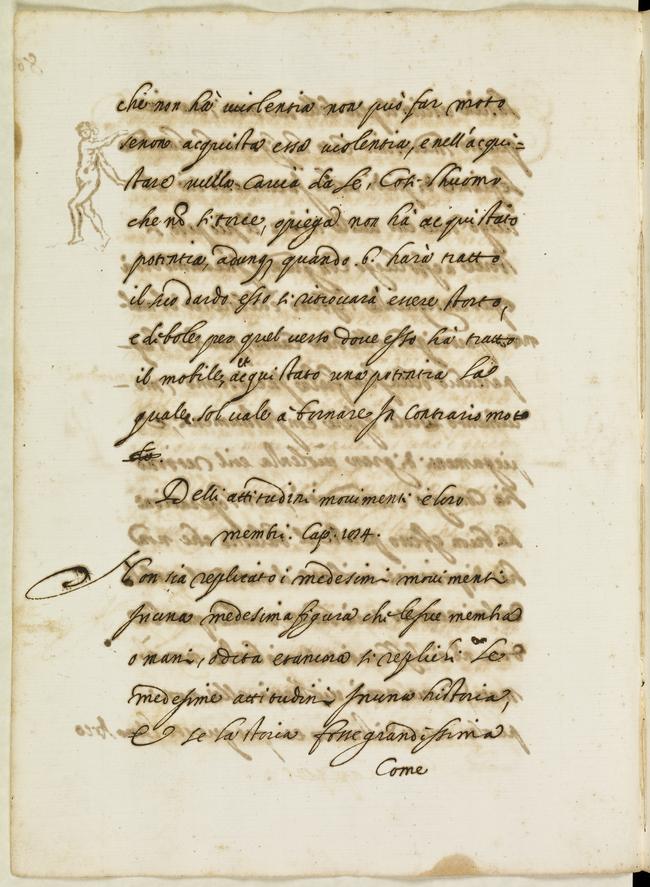 che non hà violentia non può far moto
senon acquista essa violentia, e nell'acqui=
stare nulla caccia da se, Cosi l'huomo
che nō si torce, opiega non hà acquistato
potentia, adunq, quando .b. harà tratto
il suo dardo esso si ritrouarà essere storto,
e debole per quel verso doue esso hà tratto
il mobille, et acquistato una potentia la
quale sol uale à tornare In contrario moto
Delli attitudini mouimenti e loro
membri. Cap.
Non sia replicato i medesimi mouimenti
Inuna medesima figura che lesue membra
o mani, o dita etancora si replichi le
medesime attitudini Inuna historia,
E se la storia fosse grandissima
Come